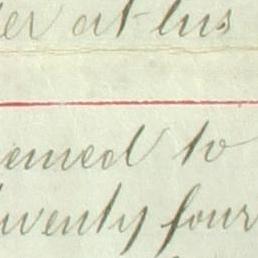 er at his
emed to
twenty four